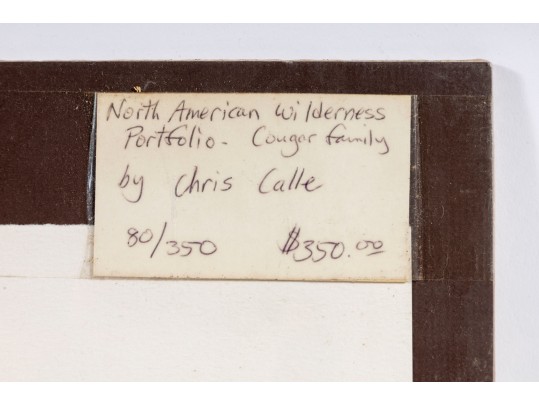 North American Wilderness
Portfolio - Cougar family
by Chris Calle
80/350 $350.00